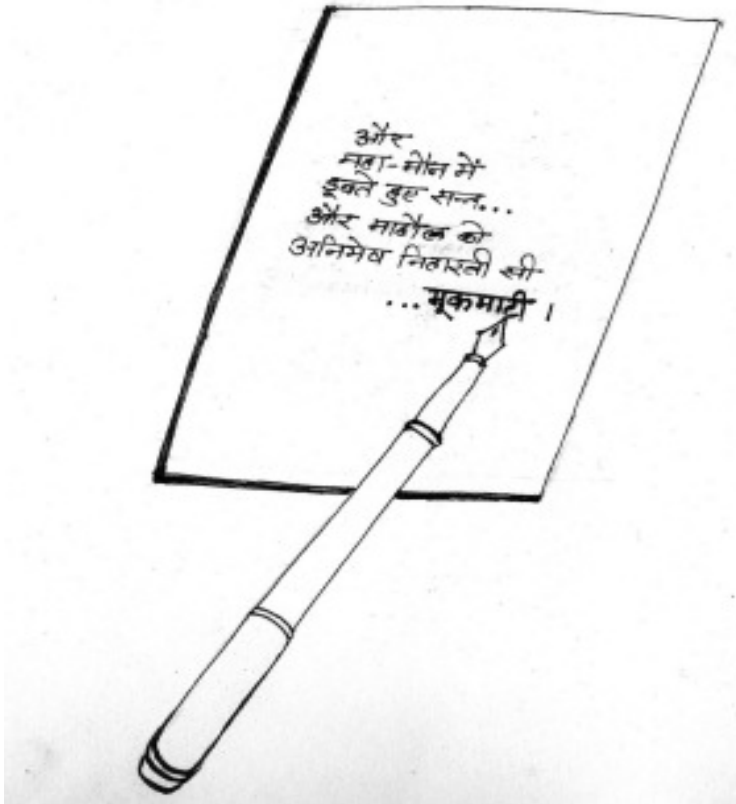 और
महा-मौन में
डूबते हुए सन्त...
और माहौल को
अनिमेष निहारती सी
...मूकमाटी ।